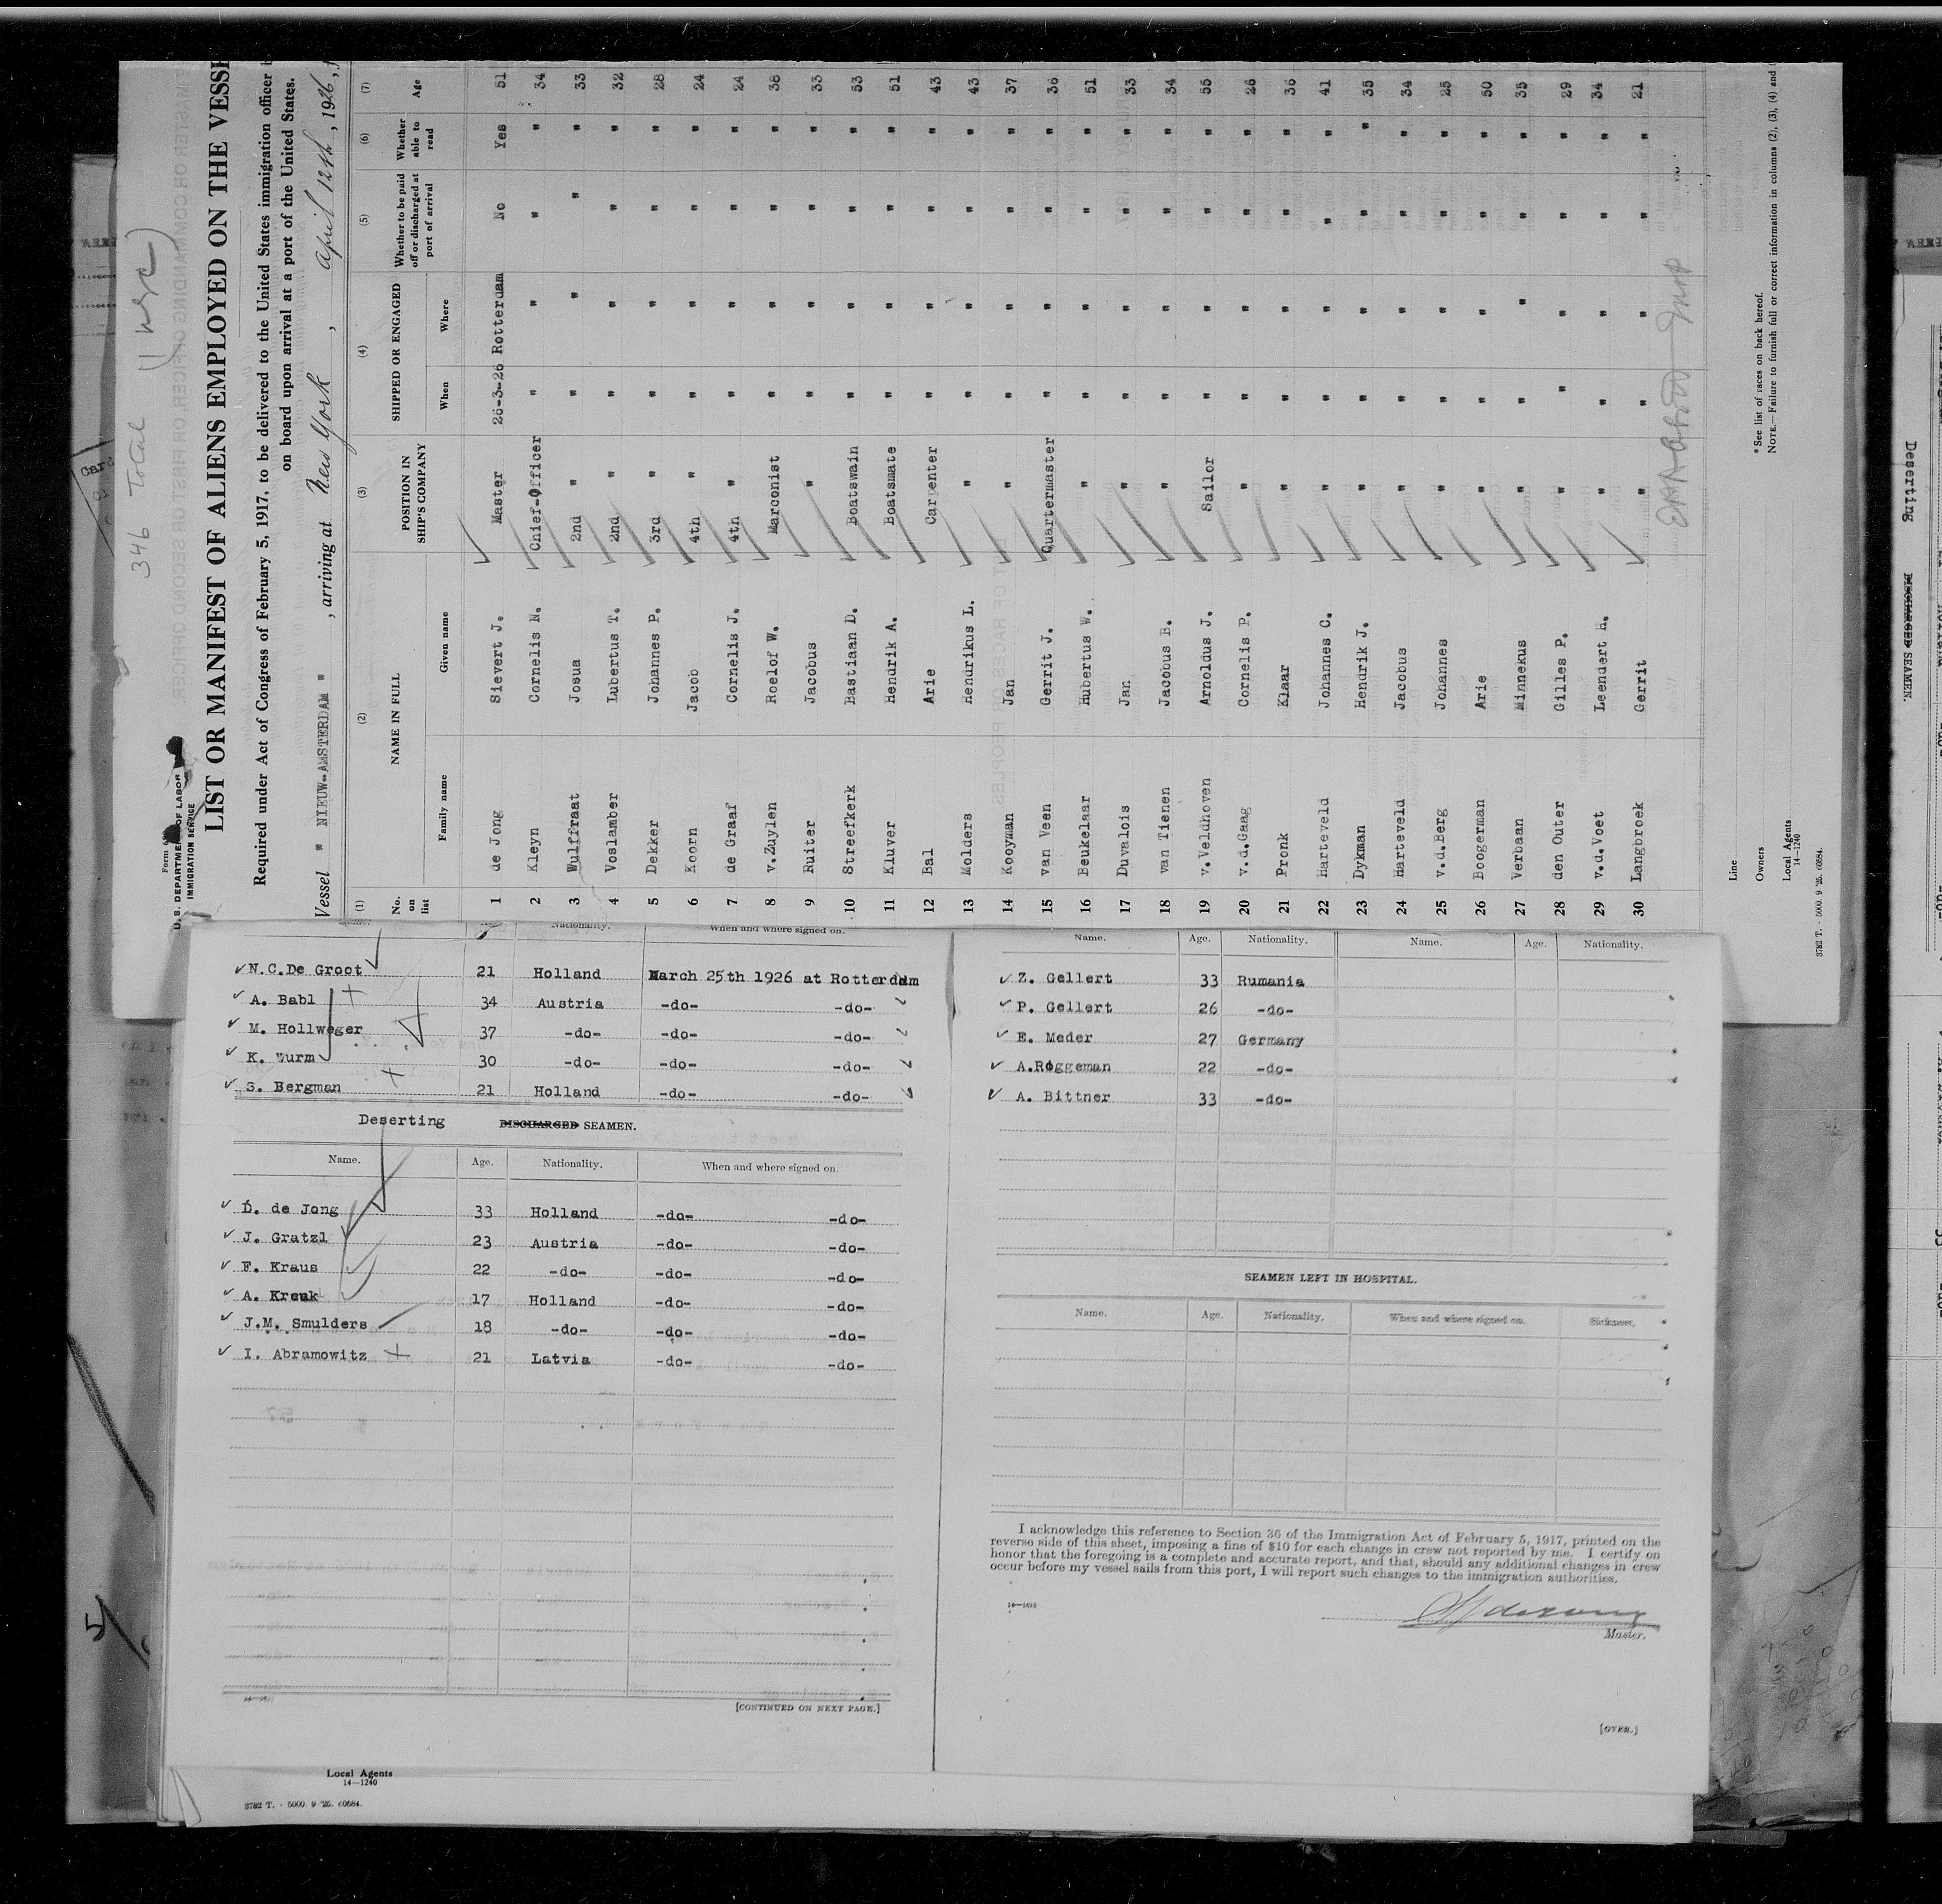 346 Total (1 wsc)
Form 689
U. S. DEPARTMENT OF LABOR
IMMIGRATION SERVICE
LIST OR MANIFEST OF ALIENS EMPLOYED ON THE VESSE
Required under Act of Congress of February 5, 1917, to be delivered to the United States immigration officer b
on board upon arrival at a port of the United States.
Vessel " NIEUW-AMSTERDAM " , arriving at New York , April 12th , 1926, f
(1) (2) (3) (4) (5) (6) (7)
No. on list NAME IN FULL POSITION IN SHIP'S COMPANY SHIPPED OR ENGAGED Whether to be paid off or discharged at port of arrival Whether able to read Age
Family name Given name When Where
1 de Jong Sievert J. Master 26-3-26 Rotterdam No Yes 51
2 Kleyn Cornelis N. Chief-Officer " " " " 34
3 Wulffraat Josua 2nd " " " " " 33
4 Voslamber Lubertus T. 2nd " " " " " 32
5 Dekker Johannes P. 3rd " " " " " 28
6 Koorn Jacob 4th " " " " " 24
7 de Graaf Cornelis J. 4th " " " " " 24
8 v.Zuylen Roelof W. Marconist " " " " 38
9 Ruiter Jacobus " " " " " 33
10 Streefkerk Bastiaan D. Boatswain " " " " 53
11 Kluver Hendrik A. Boatsmate " " " " 51
12 Bal Arie Carpenter " " " " 43
13 Molders Hendrikus L. " " " " " 43
14 Kooyman Jan " " " " " 37
15 van Veen Gerrit J. Quartermaster " " " " 36
16 Beukelaar Hubertus W. " " " " " 51
17 Duvalois Jan " " " " " 33
18 van Tienen Jacobus B. " " " " " 34
19 v.Veldhoven Arnoldus J. Sailor " " " " 55
20 v.d.Gaag Cornelis P. " " " " " 26
21 Pronk Klaar " " " " " 36
22 Harteveld Johannes C. " " " " " 41
23 Dykman Hendrik J. " " " " " 35
24 Harteveld Jacobus " " " " " 34
25 v.d.Berg Johannes " " " " " 25
26 Boogerman Arie " " " " " 50
27 Verbaan Minnekus " " " " " 35
28 den Outer Gilles P. " " " " " 29
29 v.d.Voet Leendert H. " " " " " 34
30 Langbroek Gerrit " " " " " 21
Line
Owners
Local Agents
14—1240
*See list of races on back hereof.
NOTE.—Failure to furnish full or correct information in columns (2), (3), (4) and (
3782 T. - 5000. 9 '25. 60584.
Nationality. When and where signed on.
N.C.De Groot 21 Holland March 25th 1926 at Rotterdam
A. Babl 34 Austria -do- -do-
M. Hollweger 37 -do- -do- -do-
K. Wurm 30 -do- -do- -do-
S. Bergman 21 Holland -do- -do-
Deserting DISCHARGED SEAMEN.
Name. Age. Nationality. When and where signed on.
D. de Jong 33 Holland -do- -do-
J. Gratzl 23 Austria -do- -do-
F. Kraus 22 -do- -do- -do-
A. Kreuk 17 Holland -do- -do-
J.M. Smulders 18 -do- -do- -do-
I. Abramowitz 21 Latvia -do- -do-
[CONTINUED ON NEXT PAGE.]
Local Agents
14—1240
3782 T. - 5000. 9 '25. 60584.
Name. Age. Nationality. Name. Age. Nationality.
Z. Gellert 33 Rumania
P. Gellert 26 -do-
E. Meder 27 Germany
A.Roggeman 22 -do-
A. Bittner 33 -do-
SEAMEN LEFT IN HOSPITAL.
Name. Age. Nationality. When and where signed on. Sickness.
I acknowledge this reference to Section 36 of the Immigration Act of February 5, 1917, printed on the
reverse side of this sheet, imposing a fine of $10 for each change in crew not reported by me. I certify on
honor that the foregoing is a complete and accurate report, and that, should any additional changes in crew
occur before my vessel sails from this port, I will report such changes to the immigration authorities.
14—1618
Master.
[OVER.]
5
Deserting DISCHARGED SEAMEN.